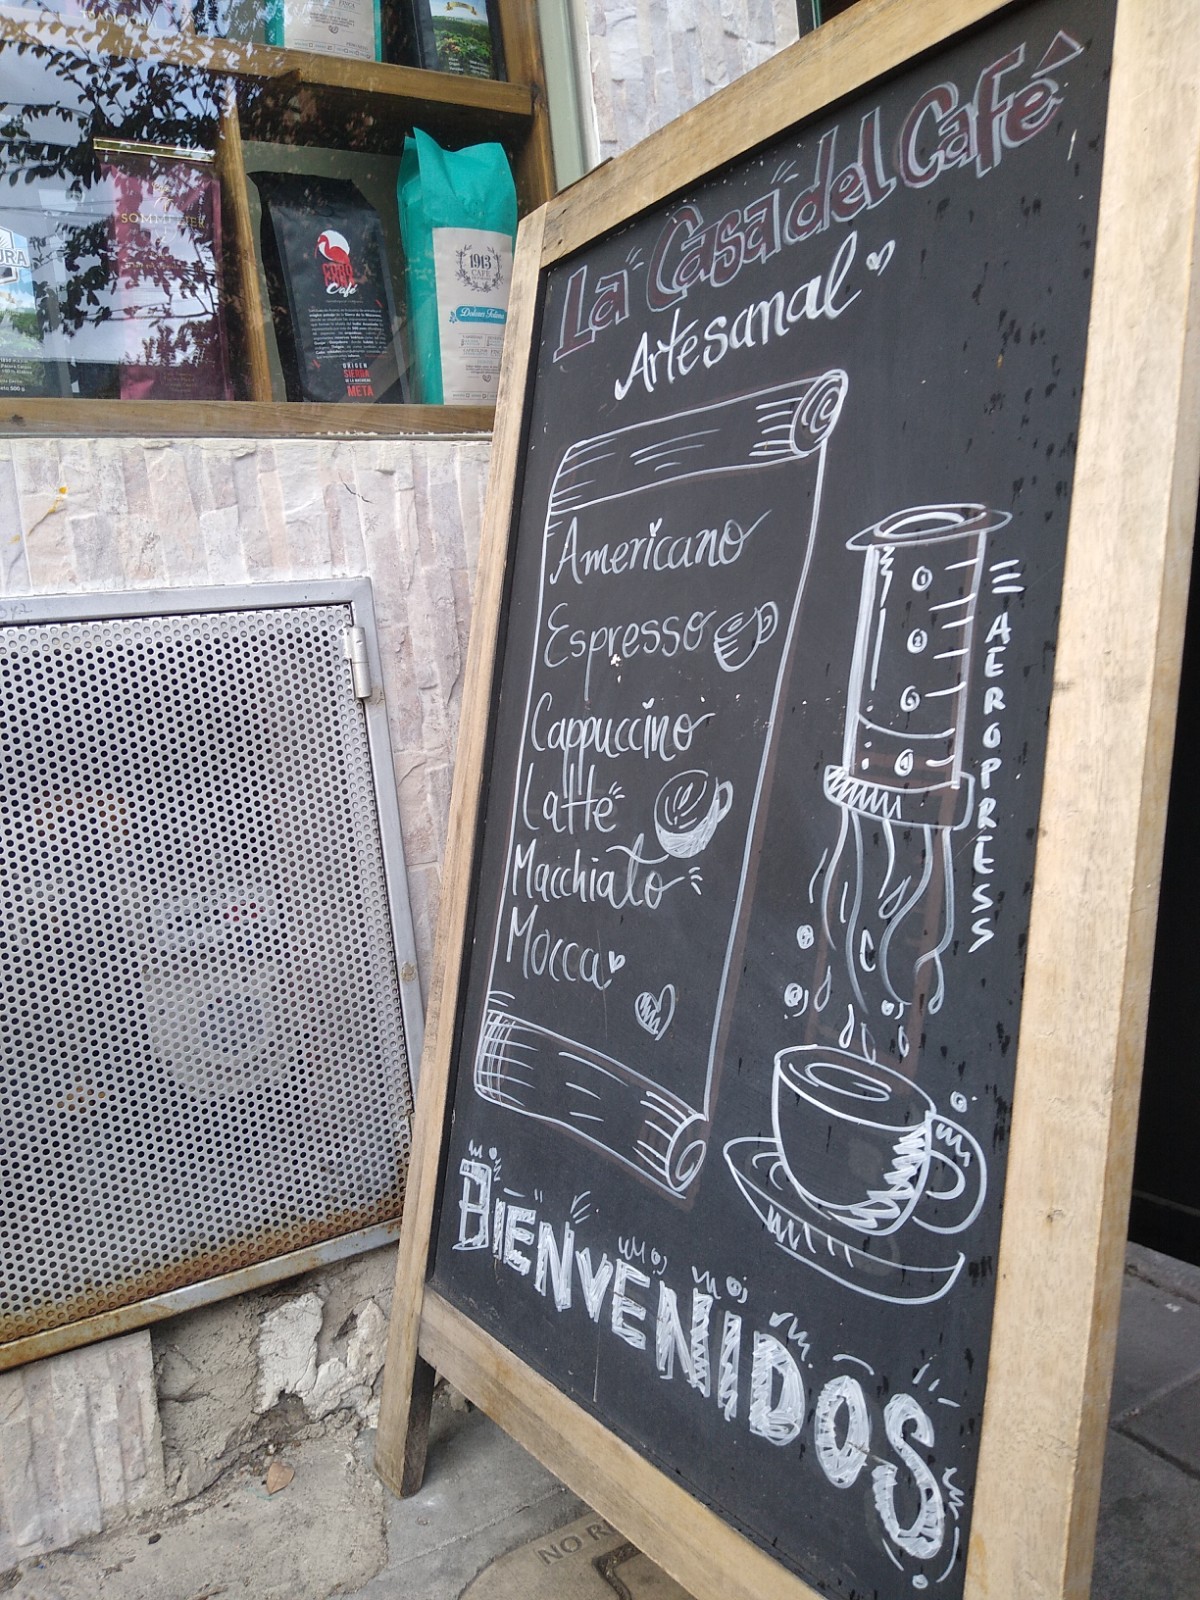 La Casa del Café
Artesanal
Americano
Espresso
Cappuccino
Latte
Macchiato
Mocca
AEROPRESS
BIENVENIDOS
1913
CAFÉ
Café
ORIGEN
SIERRA
META
NO